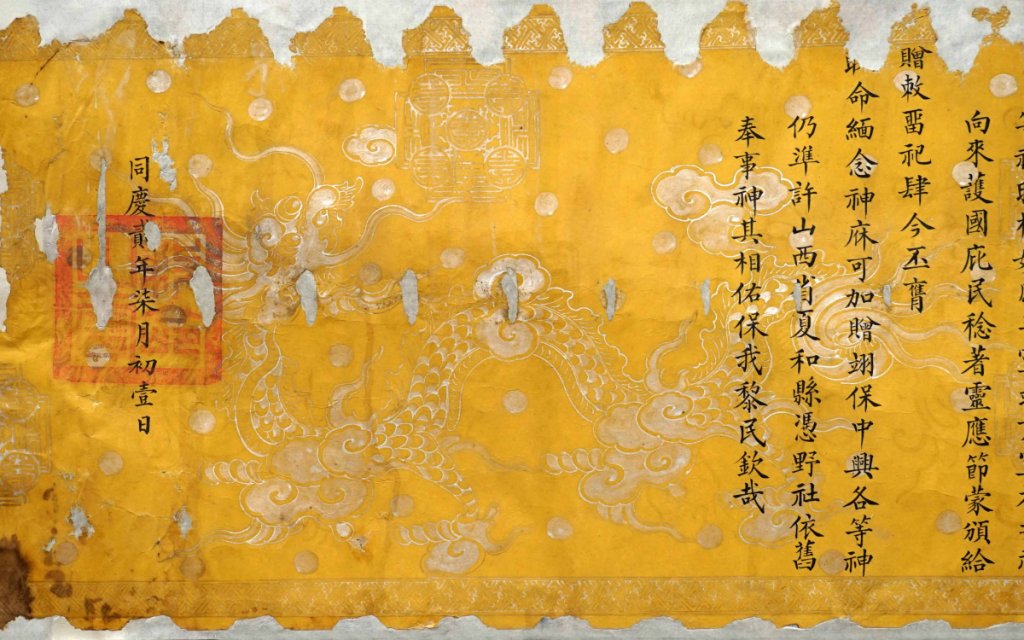 向來護國庇民稔著靈應節蒙頒給
贈敕畱祀肆今丕膺
命緬念神庥可加贈翊保中興各等神
仍準許山西省夏和縣憑野社依舊
奉事神其相佑保我黎民欽哉
同慶貳年柒月初壹日